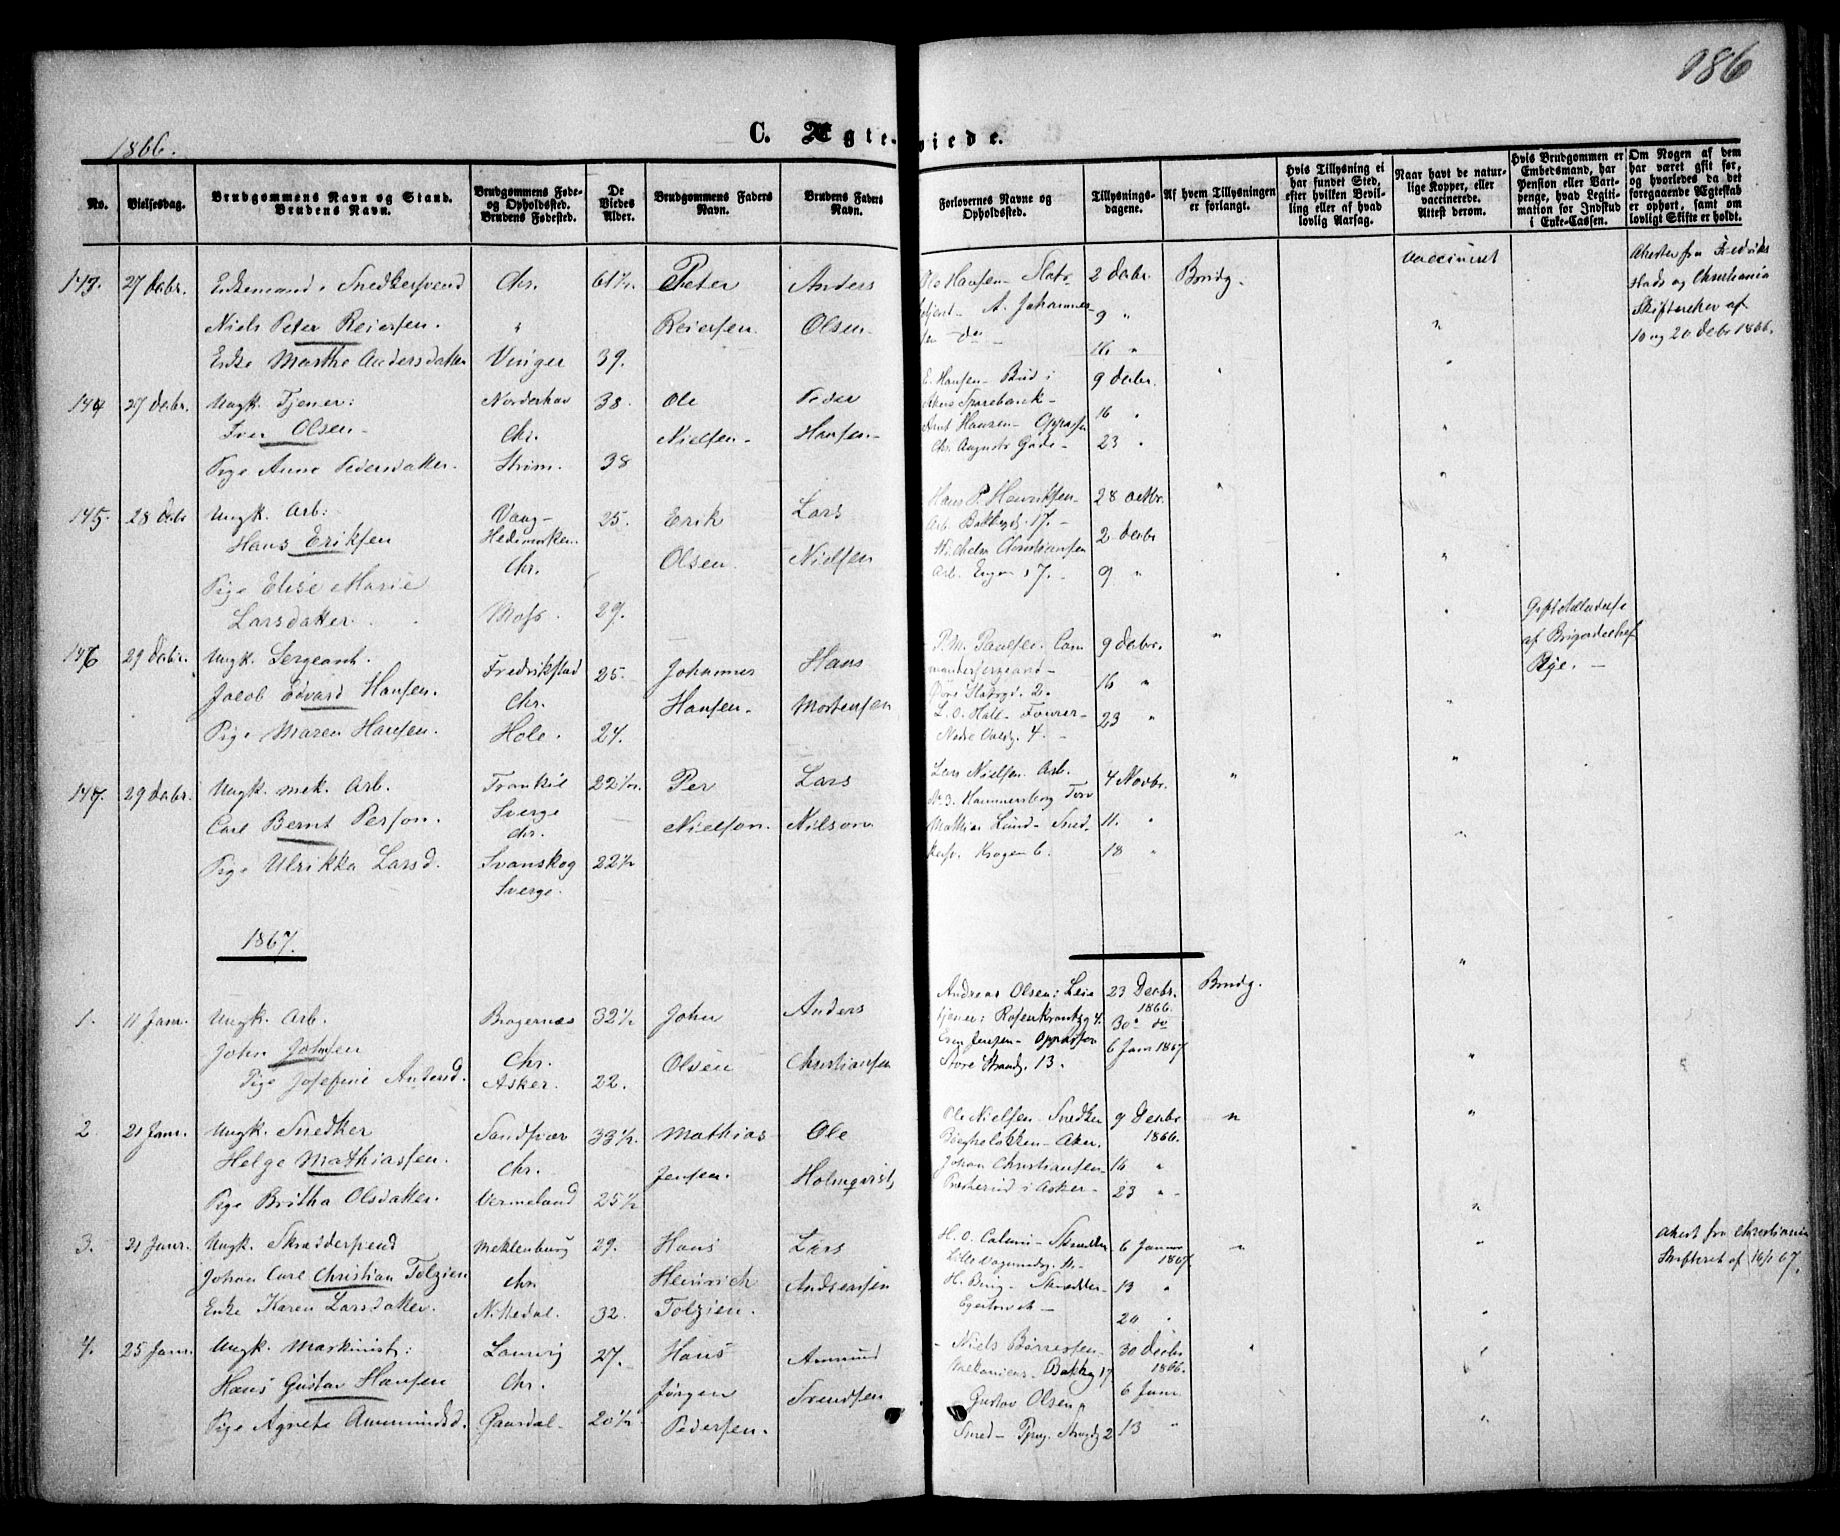 186
1866.
C. Ægteviede.
No.
Vielsesdag.
Brudgommens Navn og Stand.
Brudens Navn.
Brudgommens Føde-
og Opholdssted.
Brudens Fødested.
De
Viedes
Alder.
Brudgommens Faders
Navn.
Brudens Faders
Navn.
Forlovernes Navne og
Opholdssted.
Tillysnings-
dagene.
Af hvem Tillysningen
er forlangt.
Hvis Tillysning ei
har fundet Sted,
efter hvilken Bevil-
ling eller af hvad
lovlig Aarsag.
Naar havt de natur-
lige Kopper, eller
vaccinerede.
Attest derom.
Hvis Brudgommen er
Embedsmand, har
Pension eller Vart-
penge, hvad Legiti-
mation for Indskud
i Enke-Cassen.
Om Nogen af dem
har været gift før,
og hvorledes da det
foregaaende Ægteskab
er ophørt, samt om
lovligt Skifte er holdt.
143. 27 Debr. Enkemand, Snedkersvend Chr. 61½ Peter Anders
Niels Peter Reiersen. " Reiersen. Olsen
Enke Marthe Andersdatter Vinger 39.
Ole Hansen Slots- 2 Debr. Brudg. vaccineret
A. Johannes- 9 "
sen do 16 "
Attester fra Fredriks
stads og Christiania
Skifteretter af
10 og 20 Debr 1866.
144 27 Debr. Ungk. Tjener: Norderhov 38. Ole Peder
Iver Olsen Chr. Nielsen Hansen
Pige Anne Pedersdatter. Strøm. 38
E. Hansen Bud i 9 Debr. "
Akers Sparebank
Arnt Hansen Oppasser 16 "
Chr. Augusts Gade 23 "
145. 28 Debr Ungk. Arb: Vang 25. Erik Lars
Hans Eriksen Hedemarken. Olsen. Nielsen
Chr.
Pige Elise Marie
Larsdatter Moss. 29.
Hans P. Henriksen 28 Octbr. "
Arb. 17.
Christiansen 2 Debr
Arb. 7. 9 "
146 29 Debr. Ungk. Sergeant. Fredrikstad 25. Johannes Hans
Jacob Edvard Hansen. Chr. Hansen. Mortensen
Pige Maren Hansen. Hole. 24.
P. M. Paulsen. Com 9 Debr. "
mandersergeand
2. 16 "
L. O. Hall Fourer 23 "
Nedre Voldg. 4.
af Brigadechef
Rye.
147. 29 Debr. Ungk. mek. Arb. 22½. Per Lars
Carl Bernt Person. Sverge Nielson. Nilson
chr.
Pige Ulrikka Larsd. Svanskog 22½
Sverge.
Lars Nielsen Arb. 4 Novbr. "
No 3. Hammersborg Torv
Mathias Lund Sned- 11. "
kersv. Krogen 6. 18 "
1867.
1. 11 Janr. Ungk. Arb. Bragernæs 32½ John Anders
John Johnsen Chr. Olsen Christiansen
Pige Josefine Andersd. Asker. 22.
Andreas Olsen: Leie 23 Decbr. Brudg.
tjener: Rosenkrantzg 4. 1866.
30 do
Jensen Oppasser 6 Janr 1867
Store Strandg. 13.
2. 21 Janr. Ungk. Snedker Sandsvær 33½ Mathias Ole
Helge Mathiassen. Chr. Jensen. Holmqvist
Pige Britha Olsdatter. Vermeland 25½
Ole Nielsen Snedker 9 Decbr "
Aker. 1866.
Johan Christiansen 16 "
i Asker 23 "
3. 21 Janr. Ungk. Skrædersvend Meklenburg 29. Hans Lars
Johan Carl Christian Tolzien chr. Heinrich Andersen
Enke Karen Larsdatter. Nittedal. 32. Tolzien.
H. O. Skrædder 6 Januar "
1867
H. Skrædder 13 "
Egertorvet 20 "
Attest fra Christiania
Skifteret af 16/1 67.
4. 25 Janr. Ungk. Maskinist: Laurvig 27. Hans Ammund
Hans Gustav Hansen Chr. Jørgen Svendsen
Pige Agnete Ammundsd. Gausdal 20½ Pedersen.
Niels Børresen 30 Decbr "
Mekanicus Bakkeg 17 1866.
6 Janr.
Gustav Olsen,
Smed Strandg 2 13 "